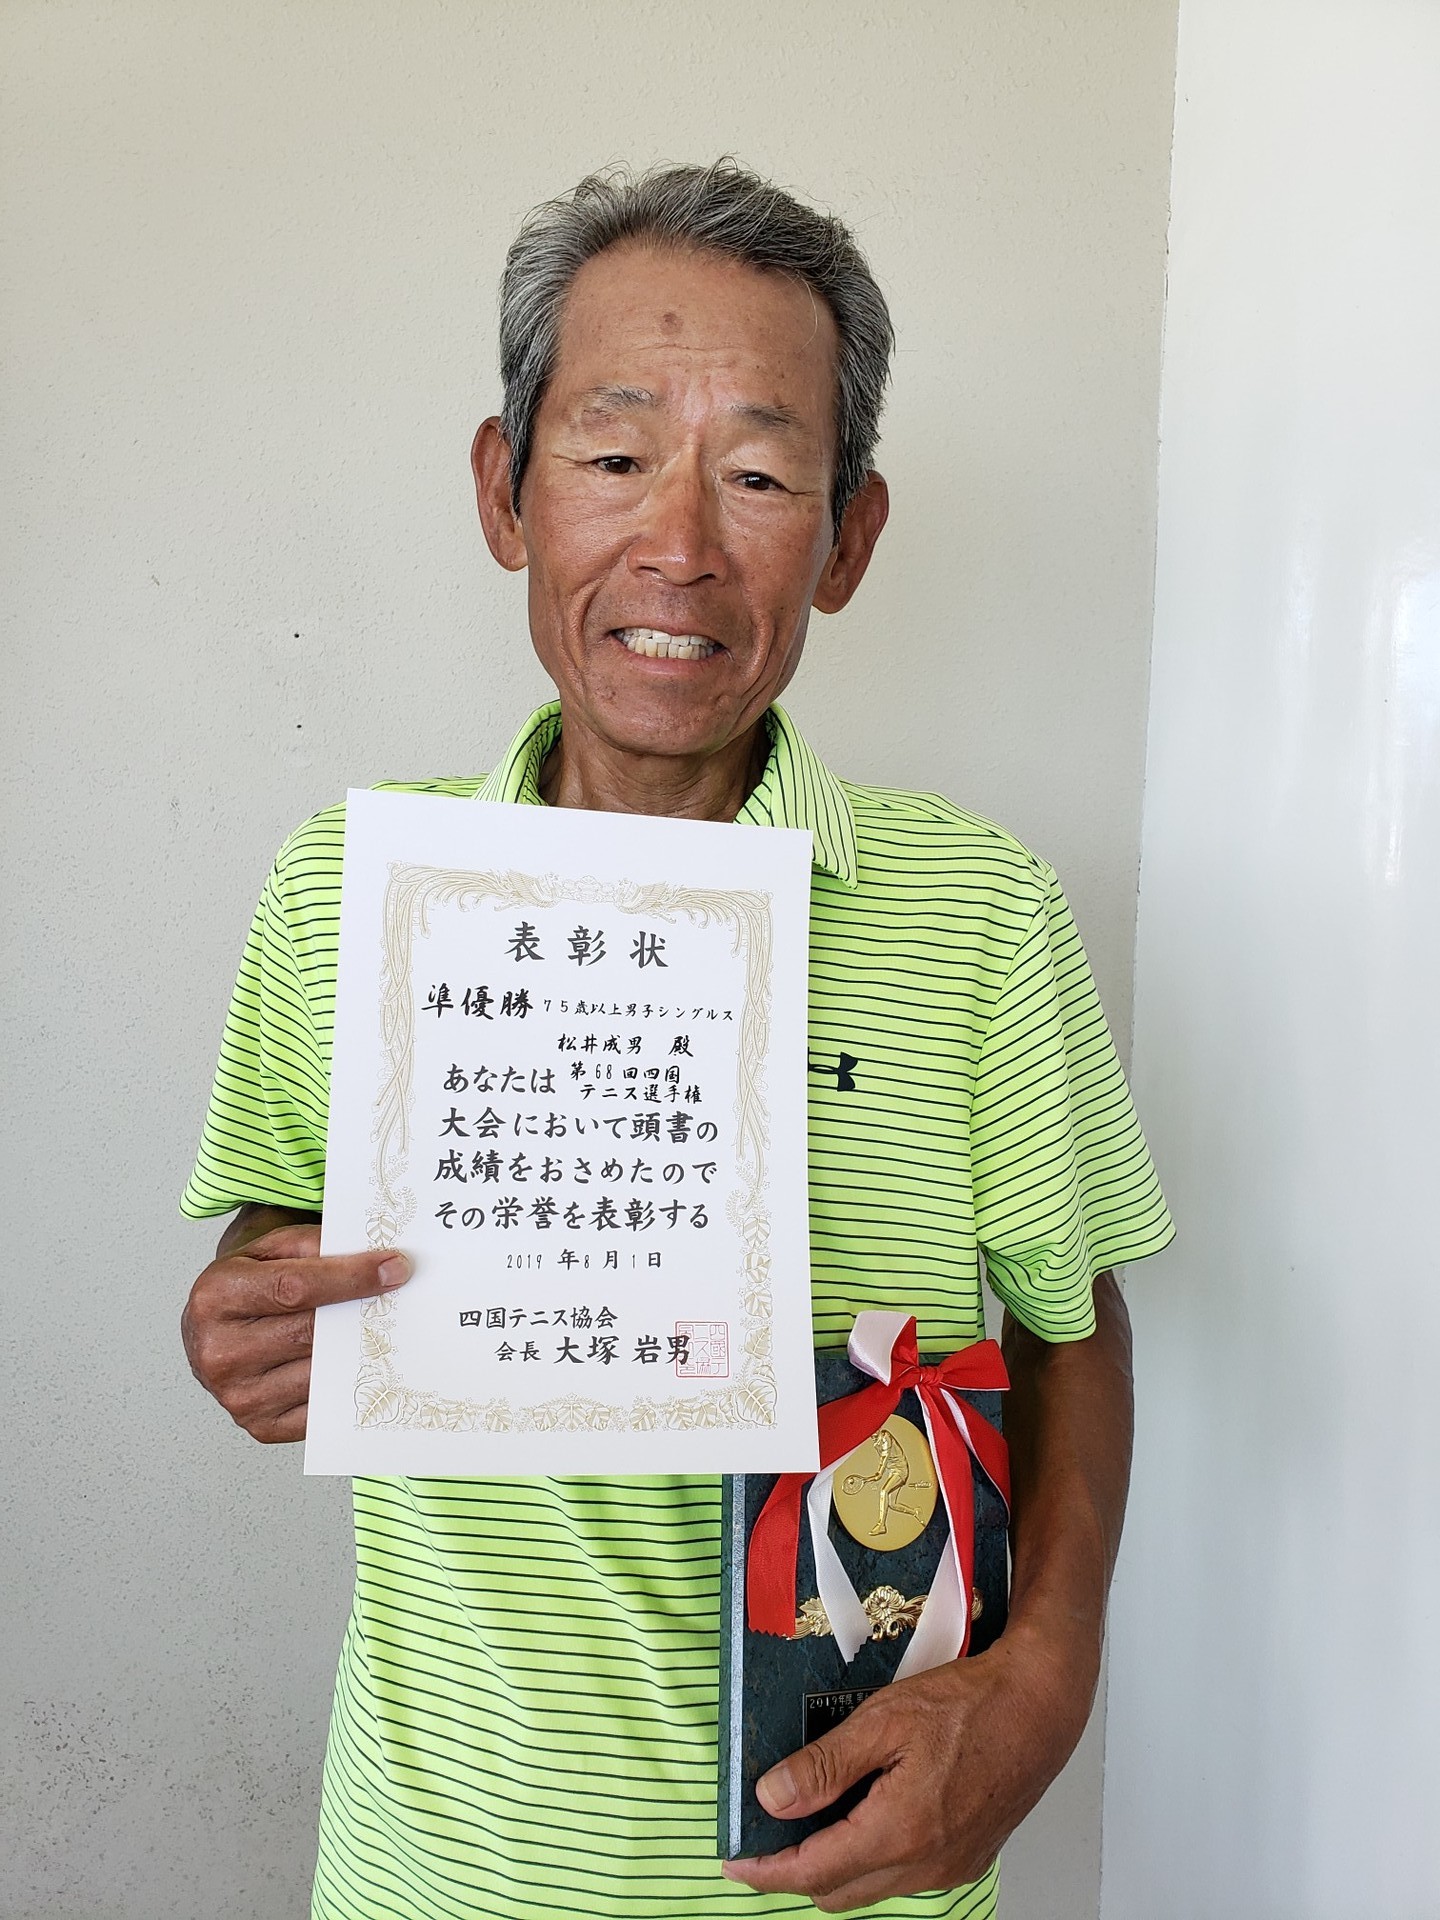 表彰状
準優勝 75歳以上男子シングルス
松井成男 殿
あなたは 第68回四国
テニス選手権
大会において頭書の
成績をおさめたので
その栄誉を表彰する
2019年8月1日
四国テニス協会
会長 大塚 岩男
2019年度 第
75